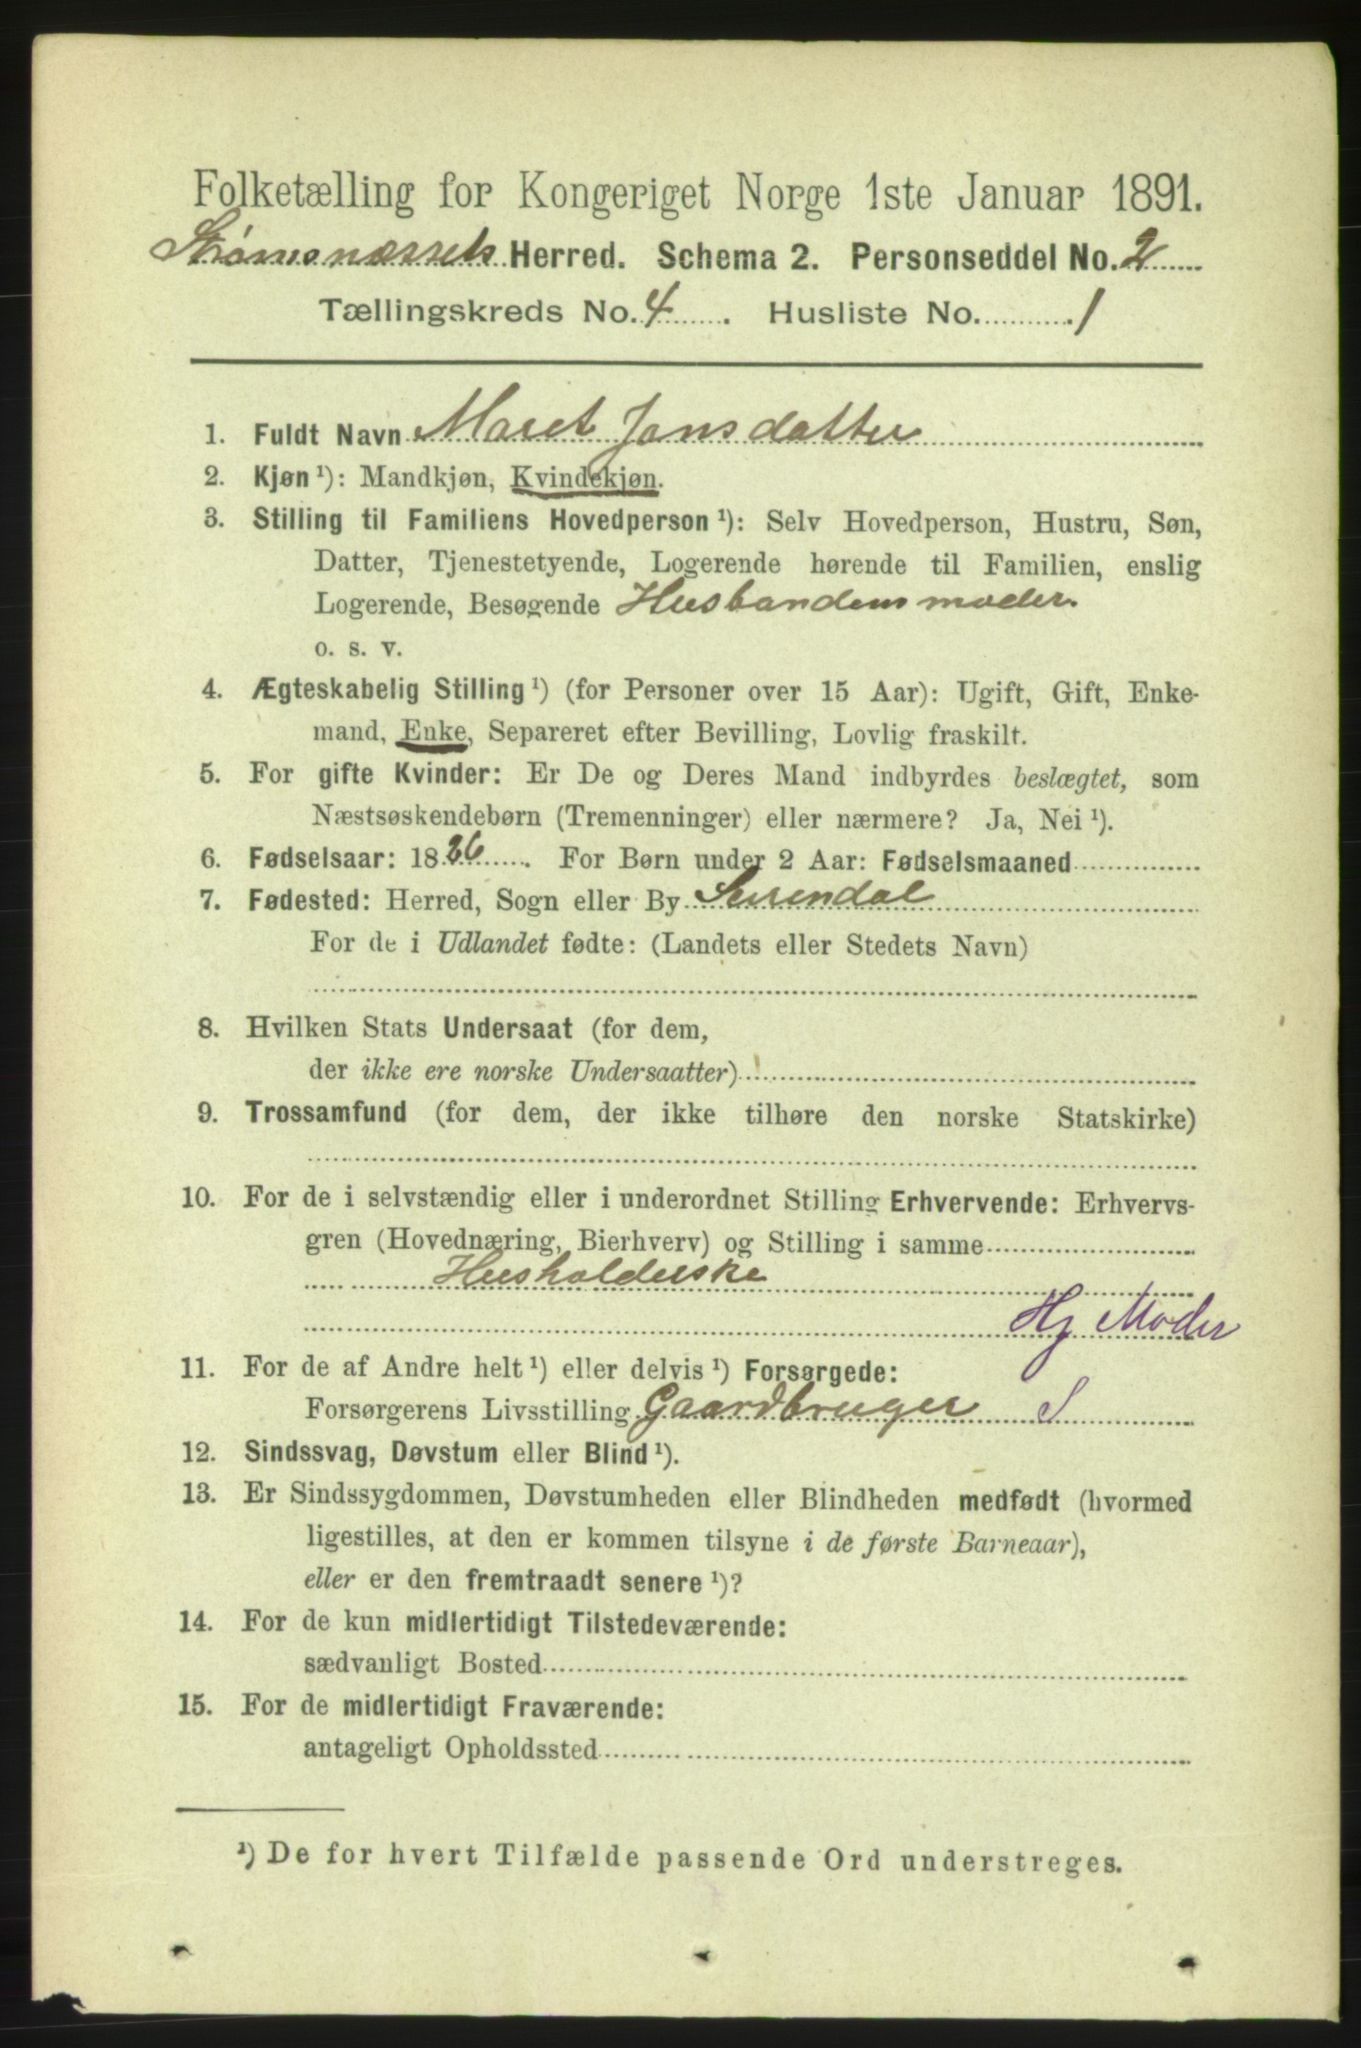 Folketælling for Kongeriget Norge 1ste Januar 1891.
Strømsnæssets Herred. Schema 2. Personseddel No. 2
Tællingskreds No. 4. Husliste No. 1
1. Fuldt Navn Maret Jonsdatter
2. Kjøn ¹): Mandkjøn, Kvindekjøn.
3. Stilling til Familiens Hovedperson ¹): Selv Hovedperson, Hustru, Søn,
Datter, Tjenestetyende, Logerende hørende til Familien, enslig
Logerende, Besøgende Husbandens moder
o. s. v.
4. Ægteskabelig Stilling ¹) (for Personer over 15 Aar): Ugift, Gift, Enke-
mand, Enke, Separeret efter Bevilling, Lovlig fraskilt.
5. For gifte Kvinder: Er De og Deres Mand indbyrdes beslægtet, som
Næstsøskendebørn (Tremenninger) eller nærmere? Ja, Nei ¹).
6. Fødselsaar: 1826. For Børn under 2 Aar: Fødselsmaaned
7. Fødested: Herred, Sogn eller By Surendal
For de i Udlandet fødte: (Landets eller Stedets Navn)
8. Hvilken Stats Undersaat (for dem,
der ikke ere norske Undersaatter)
9. Trossamfund (for dem, der ikke tilhøre den norske Statskirke)
10. For de i selvstændig eller i underordnet Stilling Erhvervende: Erhvervs-
gren (Hovednæring, Bierhverv) og Stilling i samme
Husholderske
Hj Moder
11. For de af Andre helt ¹) eller delvis ¹) Forsørgede:
Forsørgerens Livsstilling Gaardbruger S
12. Sindssvag, Døvstum eller Blind ¹).
13. Er Sindssygdommen, Døvstumheden eller Blindheden medfødt (hvormed
ligestilles, at den er kommen tilsyne i de første Barneaar),
eller er den fremtraadt senere ¹)?
14. For de kun midlertidigt Tilstedeværende:
sædvanligt Bosted
15. For de midlertidigt Fraværende:
antageligt Opholdssted
¹) De for hvert Tilfælde passende Ord understreges.